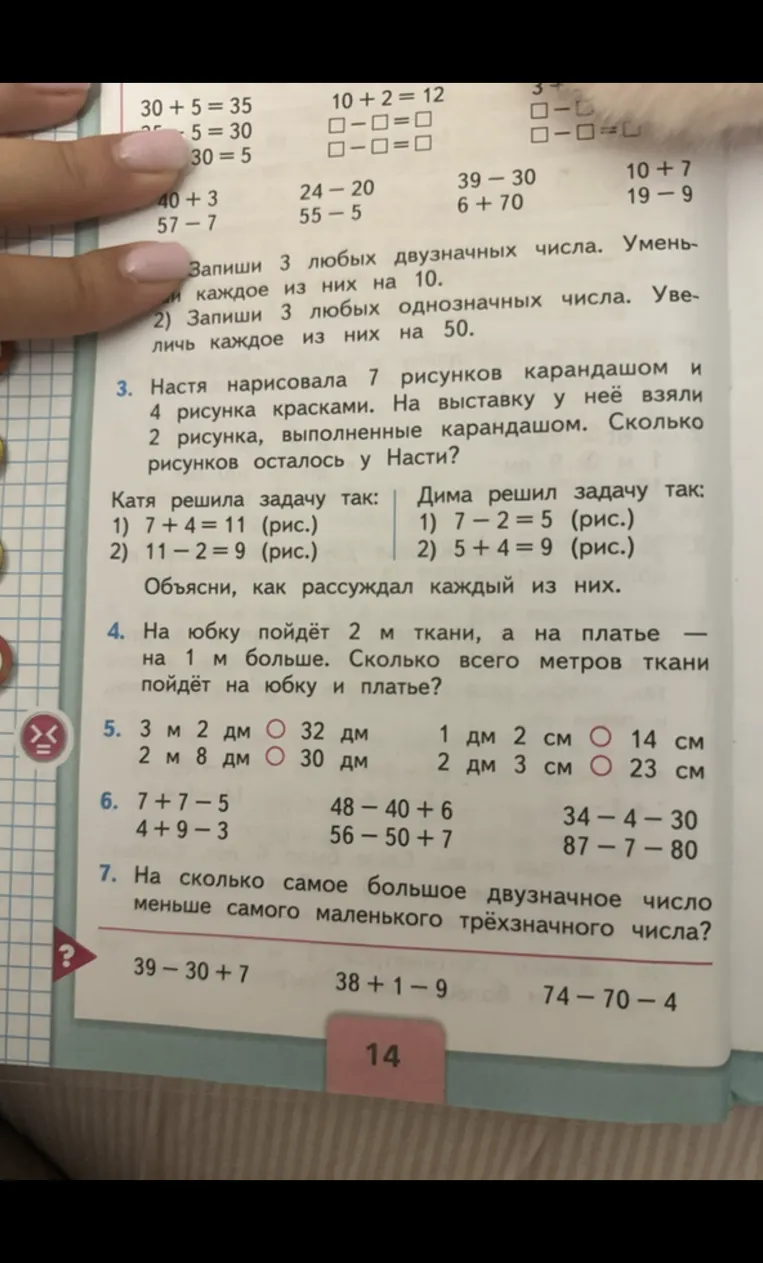 30 + 5 = 35
10 + 2 = 12
3
- 5 = 30
□ − □ = □
□ − □
30 = 5
□ − □ = □
□ − □ = □
40 + 3
24 − 20
39 − 30
10 + 7
57 − 7
55 − 5
6 + 70
19 − 9
Запиши 3 любых двузначных числа. Умень-
каждое из них на 10.
2) Запиши 3 любых однозначных числа. Уве-
личь каждое из них на 50.
3. Настя нарисовала 7 рисунков карандашом и
4 рисунка красками. На выставку у неё взяли
2 рисунка, выполненные карандашом. Сколько
рисунков осталось у Насти?
Катя решила задачу так:
1) 7 + 4 = 11 (рис.)
2) 11 − 2 = 9 (рис.)
Дима решил задачу так:
1) 7 − 2 = 5 (рис.)
2) 5 + 4 = 9 (рис.)
Объясни, как рассуждал каждый из них.
4. На юбку пойдёт 2 м ткани, а на платье —
на 1 м больше. Сколько всего метров ткани
пойдёт на юбку и платье?
5. 3 м 2 дм ○ 32 дм
1 дм 2 см ○ 14 см
2 м 8 дм ○ 30 дм
2 дм 3 см ○ 23 см
6. 7 + 7 − 5
48 − 40 + 6
34 − 4 − 30
4 + 9 − 3
56 − 50 + 7
87 − 7 − 80
7. На сколько самое большое двузначное число
меньше самого маленького трёхзначного числа?
?
39 − 30 + 7
38 + 1 − 9
74 − 70 − 4
14